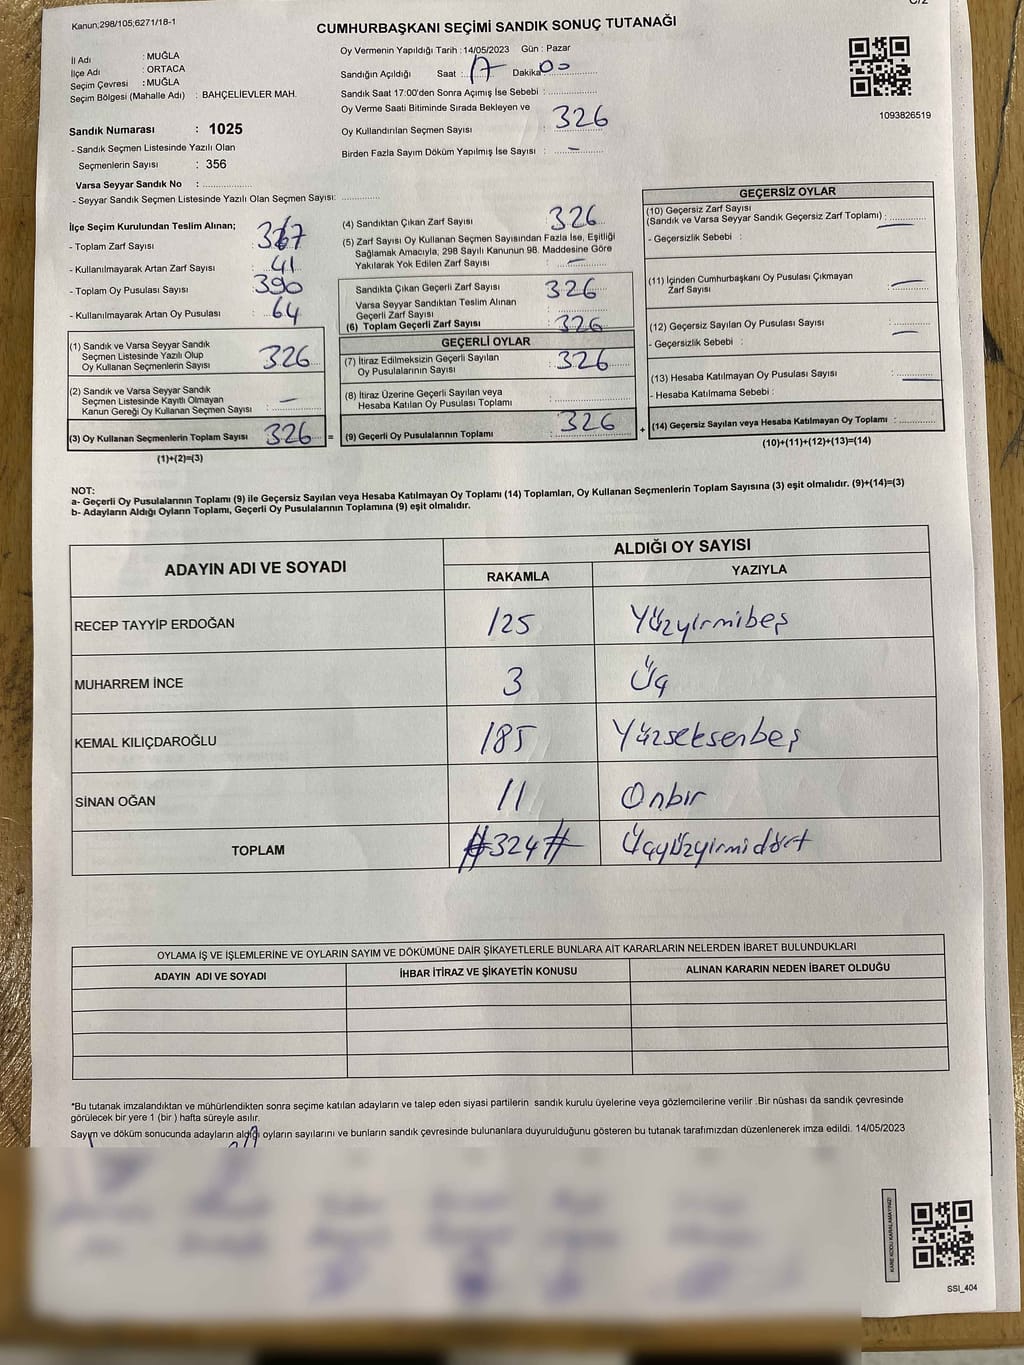 Kanun;298/105;6271/18-1
C/2
CUMHURBAŞKANI SEÇİMİ SANDIK SONUÇ TUTANAĞI
İl Adı : MUĞLA
İlçe Adı : ORTACA
Seçim Çevresi : MUĞLA
Seçim Bölgesi (Mahalle Adı) : BAHÇELİEVLER MAH.
Oy Vermenin Yapıldığı Tarih : 14/05/2023 Gün : Pazar
Sandığın Açıldığı Saat : 17 Dakika 00
Sandık Saat 17:00'den Sonra Açımış İse Sebebi :
Oy Verme Saati Bitiminde Sırada Bekleyen ve
Oy Kullandırılan Seçmen Sayısı : 326
Birden Fazla Sayım Döküm Yapılmış İse Sayısı : –
1093826519
Sandık Numarası : 1025
- Sandık Seçmen Listesinde Yazılı Olan
Seçmenlerin Sayısı : 356
Varsa Seyyar Sandık No :
- Seyyar Sandık Seçmen Listesinde Yazılı Olan Seçmen Sayısı:
İlçe Seçim Kurulundan Teslim Alınan;
- Toplam Zarf Sayısı : 367
- Kullanılmayarak Artan Zarf Sayısı : 41
- Toplam Oy Pusulası Sayısı : 390
- Kullanılmayarak Artan Oy Pusulası : 64
(1) Sandık ve Varsa Seyyar Sandık
Seçmen Listesinde Yazılı Olup
Oy Kullanan Seçmenlerin Sayısı : 326
(2) Sandık ve Varsa Seyyar Sandık
Seçmen Listesinde Kayıtlı Olmayan
Kanun Gereği Oy Kullanan Seçmen Sayısı : –
(3) Oy Kullanan Seçmenlerin Toplam Sayısı 326 =
(1)+(2)=(3)
(4) Sandıktan Çıkan Zarf Sayısı : 326
(5) Zarf Sayısı Oy Kullanan Seçmen Sayısından Fazla İse, Eşitliği
Sağlamak Amacıyla, 298 Sayılı Kanunun 98. Maddesine Göre
Yakılarak Yok Edilen Zarf Sayısı : –
Sandıkta Çıkan Geçerli Zarf Sayısı : 326
Varsa Seyyar Sandıktan Teslim Alınan
Geçerli Zarf Sayısı :
(6) Toplam Geçerli Zarf Sayısı : 326
GEÇERLİ OYLAR
(7) İtiraz Edilmeksizin Geçerli Sayılan
Oy Pusulalarının Sayısı : 326
(8) İtiraz Üzerine Geçerli Sayılan veya
Hesaba Katılan Oy Pusulası Toplamı :
(9) Geçerli Oy Pusulalarının Toplamı : 326 +
GEÇERSİZ OYLAR
(10) Geçersiz Zarf Sayısı
(Sandık ve Varsa Seyyar Sandık Geçersiz Zarf Toplamı) : –
- Geçersizlik Sebebi :
(11) İçinden Cumhurbaşkanı Oy Pusulası Çıkmayan
Zarf Sayısı : –
(12) Geçersiz Sayılan Oy Pusulası Sayısı : –
- Geçersizlik Sebebi :
(13) Hesaba Katılmayan Oy Pusulası Sayısı : –
- Hesaba Katılmama Sebebi :
(14) Geçersiz Sayılan veya Hesaba Katılmayan Oy Toplamı :
(10)+(11)+(12)+(13)=(14)
NOT:
a- Geçerli Oy Pusulalarının Toplamı (9) ile Geçersiz Sayılan veya Hesaba Katılmayan Oy Toplamı (14) Toplamları, Oy Kullanan Seçmenlerin Toplam Sayısına (3) eşit olmalıdır. (9)+(14)=(3)
b- Adayların Aldığı Oyların Toplamı, Geçerli Oy Pusulalarının Toplamına (9) eşit olmalıdır.
ADAYIN ADI VE SOYADI ALDIĞI OY SAYISI
RAKAMLA YAZIYLA
RECEP TAYYİP ERDOĞAN 125 Yüzyirmibeş
MUHARREM İNCE 3 Üç
KEMAL KILIÇDAROĞLU 185 Yüzseksenbeş
SİNAN OĞAN 11 Onbir
TOPLAM #324# Üçyüzyirmidört
OYLAMA İŞ VE İŞLEMLERİNE VE OYLARIN SAYIM VE DÖKÜMÜNE DAİR ŞİKAYETLERLE BUNLARA AİT KARARLARIN NELERDEN İBARET BULUNDUKLARI
ADAYIN ADI VE SOYADI İHBAR İTİRAZ VE ŞİKAYETİN KONUSU ALINAN KARARIN NEDEN İBARET OLDUĞU
*Bu tutanak imzalandıktan ve mühürlendikten sonra seçime katılan adayların ve talep eden siyasi partilerin sandık kurulu üyelerine veya gözlemcilerine verilir .Bir nüshası da sandık çevresinde
görülecek bir yere 1 (bir ) hafta süreyle asılır.
Sayım ve döküm sonucunda adayların aldığı oyların sayılarını ve bunların sandık çevresinde bulunanlara duyurulduğunu gösteren bu tutanak tarafımızdan düzenlenerek imza edildi. 14/05/2023
KARE KODU KARALAMAYINIZ!
SSI_404